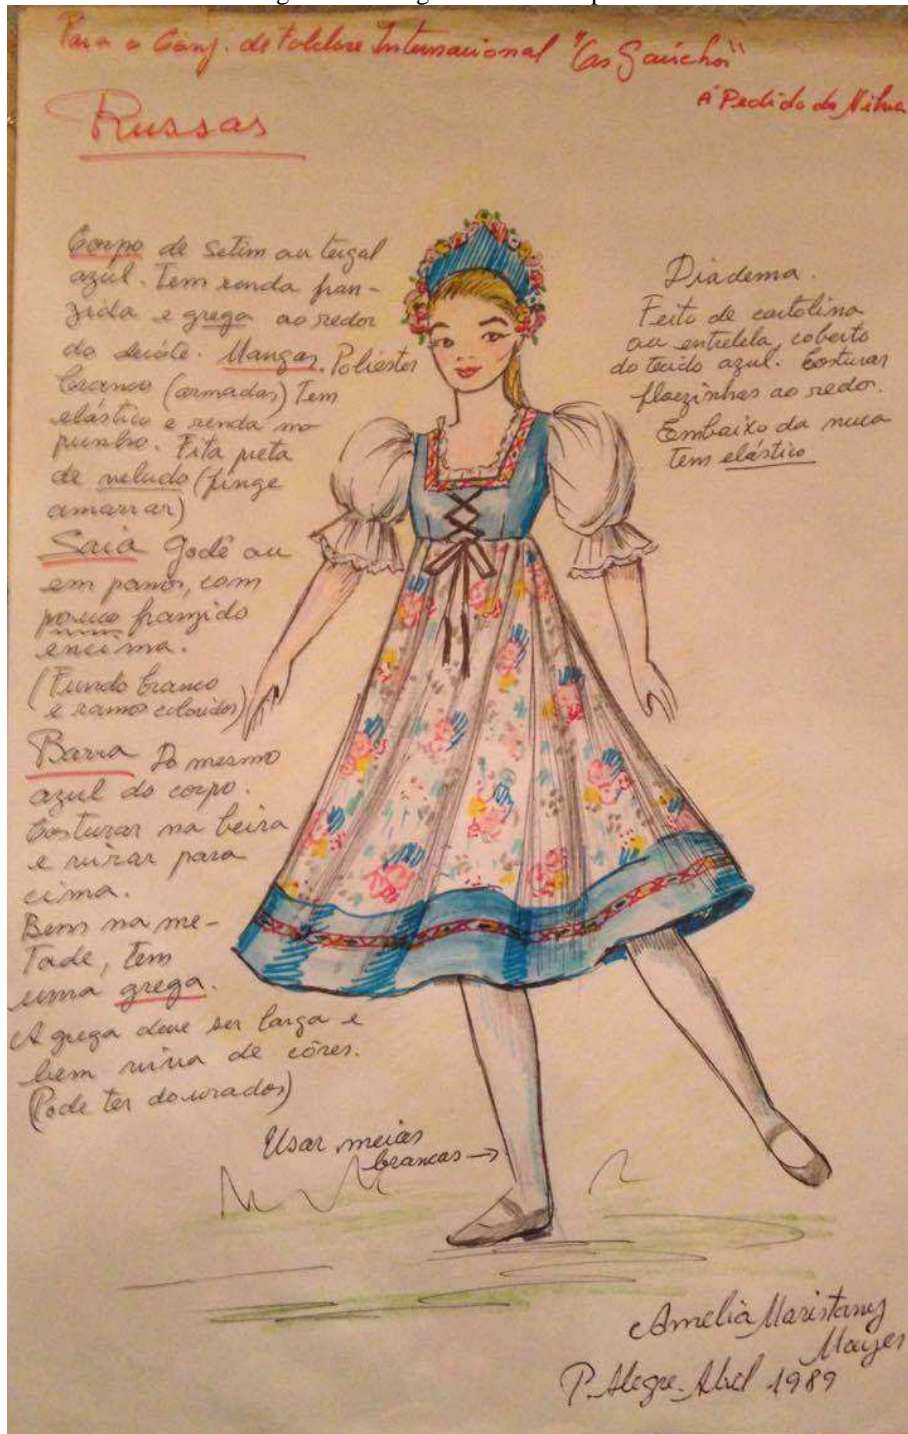 Para o Conj. de Folclore Internacional "Os Gaúchos"
A Pedido da Nilva
Russas
Corpo de setim ou tergal
azul. Tem renda fran-
zida e grega ao redor
do decote. Mangas. Poliester
branco (armadas) Tem
elástico e renda no
punho. Fita preta
de veludo (finge
amarrar)
Saia Godê ou
em panos, com
pouco franzido
encima.
(Fundo branco
e ramos coloridos)
Barra Do mesmo
azul do corpo.
Costurar na beira
e virar para
cima.
Bem na me-
tade, tem
uma grega.
A grega deve ser larga e
bem viva de côres.
(Pode ter dourados)
Diadema.
Feito de cartolina
ou entretela, coberto
do tecido azul. Costurar
florzinhas ao redor.
Embaixo da nuca
tem elástico
Usar meias
brancas
Amelia Maristany
P. Alegre. Abril 1989